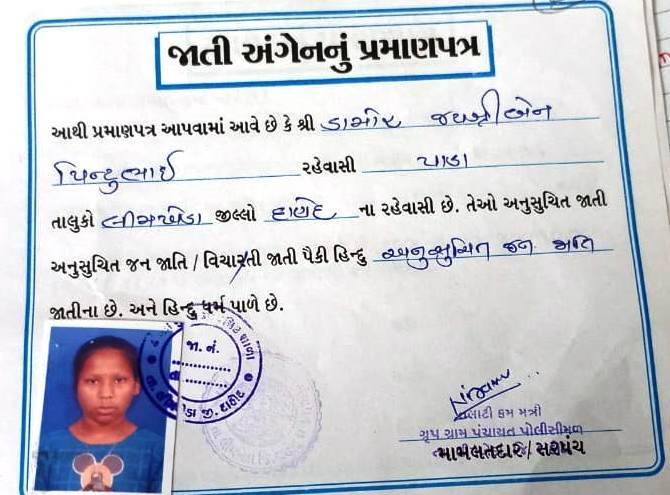 જાતી અંગેનનું પ્રમાણપત્ર
આથી પ્રમાણપત્ર આપવામાં આવે છે કે શ્રી ડામોર જયશ્રીબેન
પિન્ટુભાઇ રહેવાસી પાડા
તાલુકો લીમખેડા જીલ્લો દાહોદ ના રહેવાસી છે. તેઓ અનુસુચિત જાતી
અનુસુચિત જન જાતિ / વિચારતી જાતી પૈકી હિન્દુ અનુસુચિત જન જાતિ
જાતીના છે. અને હિન્દુ ધર્મ પાળે છે.
જા. નં.
જી. દાહોદ
તલાટી કમ મંત્રી
ગ્રુપ ગ્રામ પંચાયત પોલીસીમળ
મામલતદાર / સરપંચ